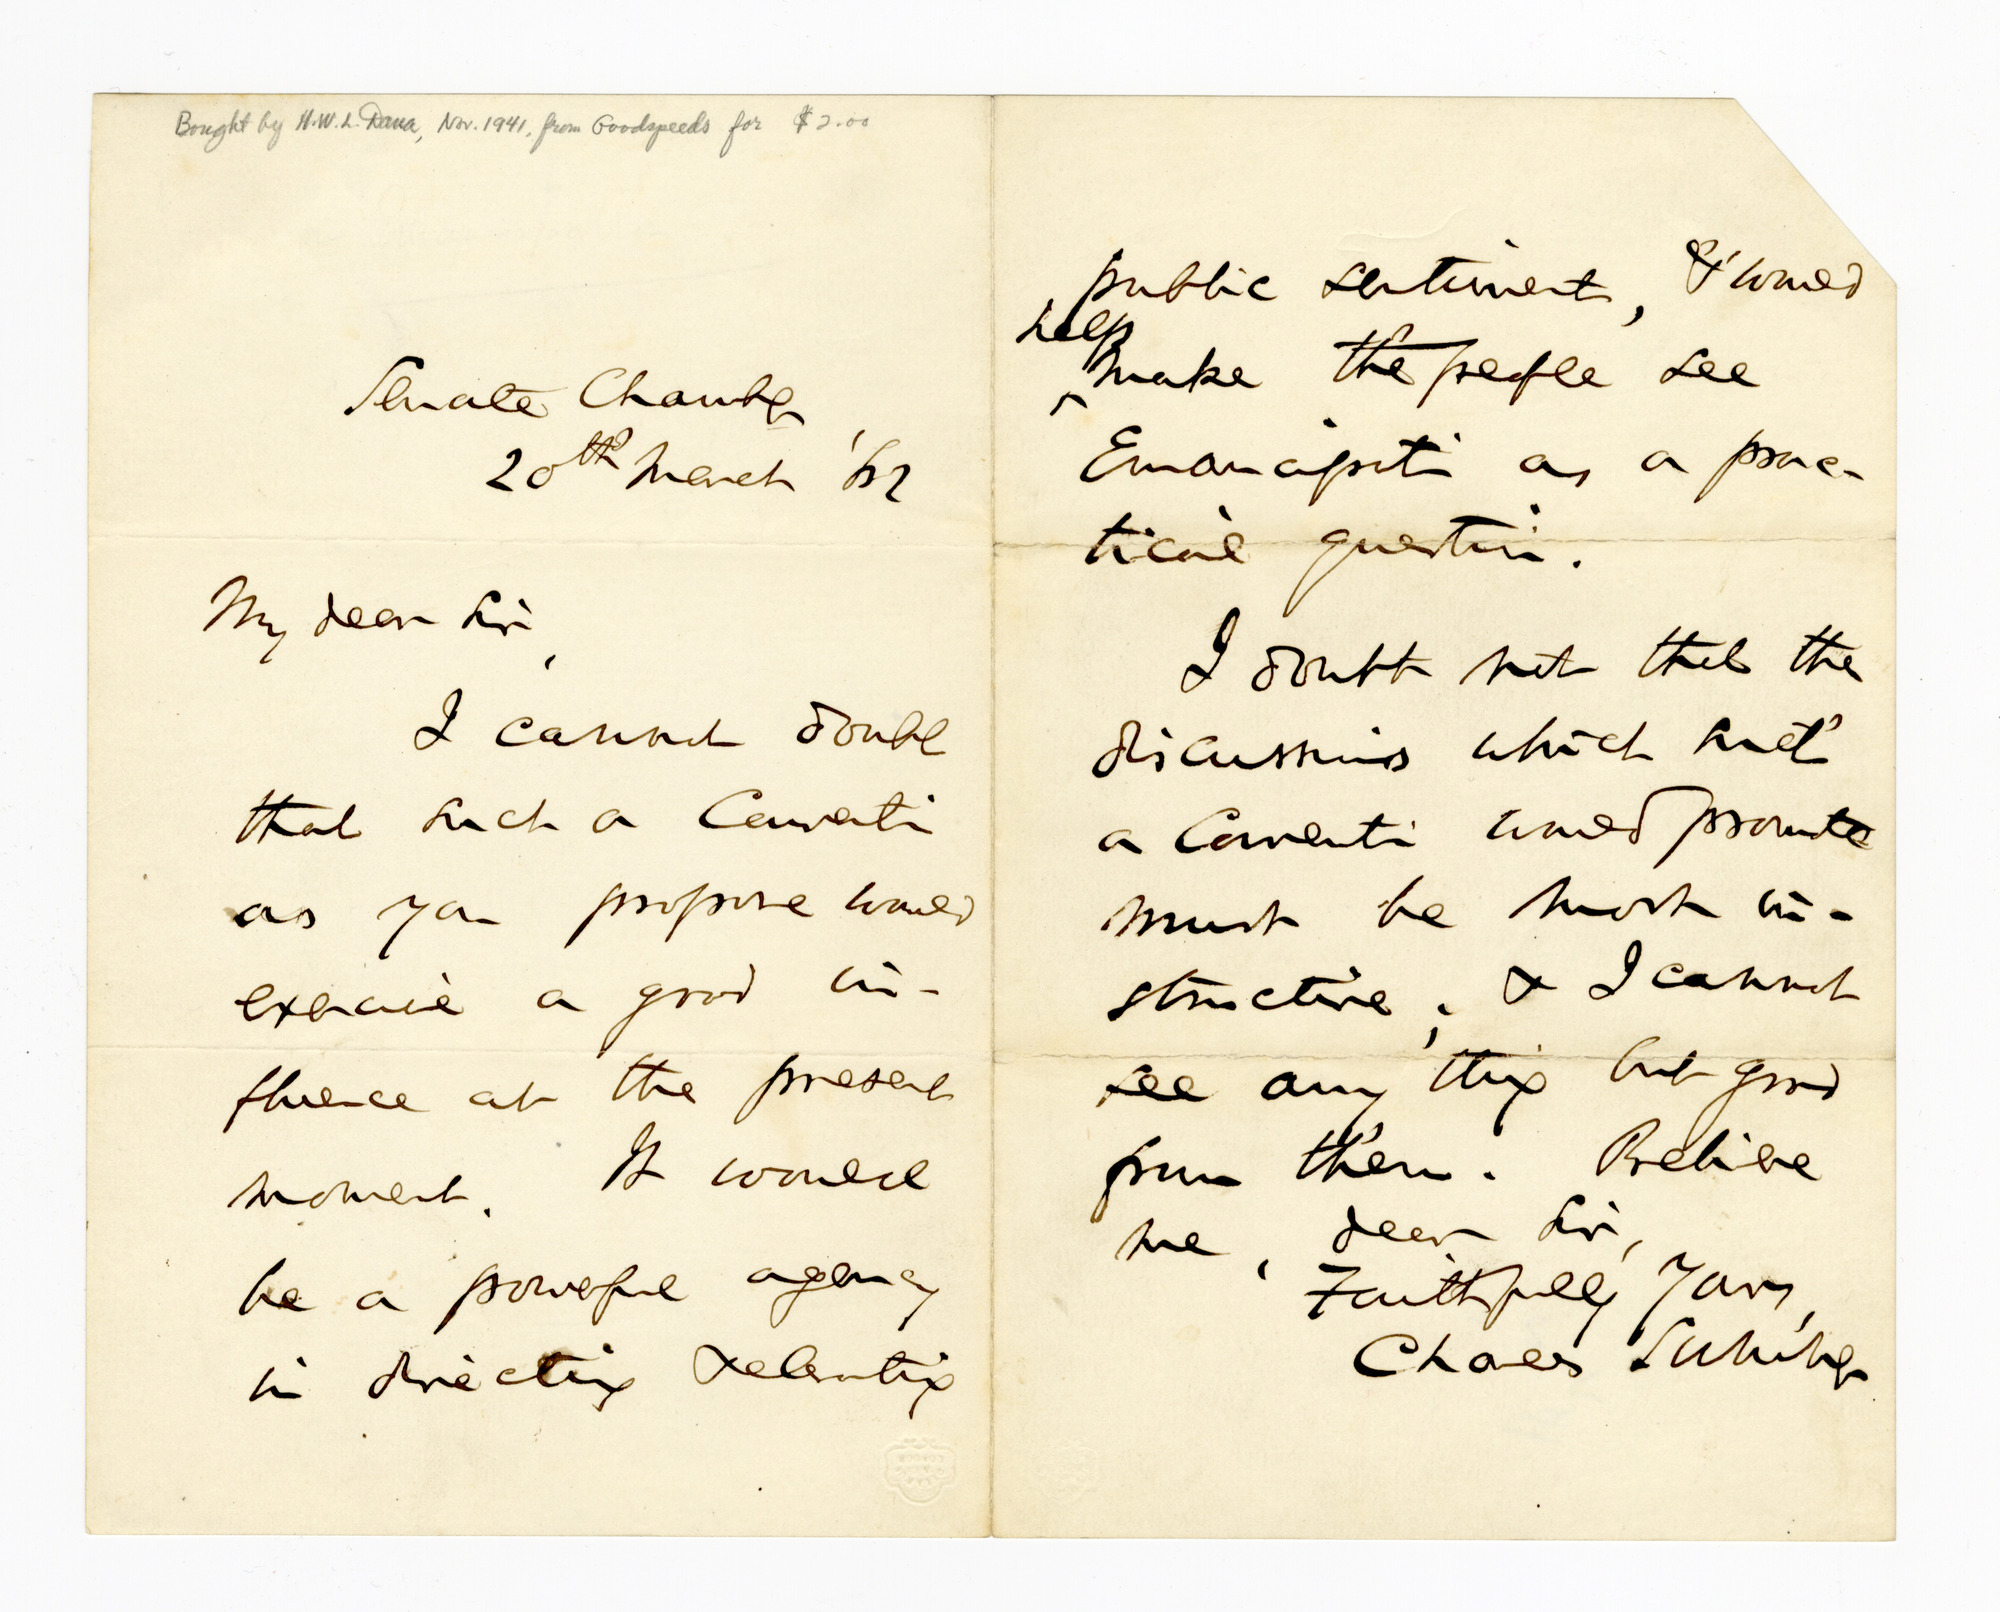 Bought by H.W.L. Dana, Nov. 1941, from Goodspeeds for $2.00
Senate Chamber
20th March '62
My dear Sir,
I cannot doubt
that such a Conventi
as you propose would
exercise a good in-
fluence at the present
moment. It would
be a powerful agency
in directing & elevating
public sentiment, & would
help
make the people see
Emancipati as a prac-
tical question.
I doubt not that the
discussions which such
a Conventi would promote
must be most in-
structive; & I cannot
see any thing but good
from them. Believe
me, dear Sir,
Faithfully Yours,
Charles Sumner